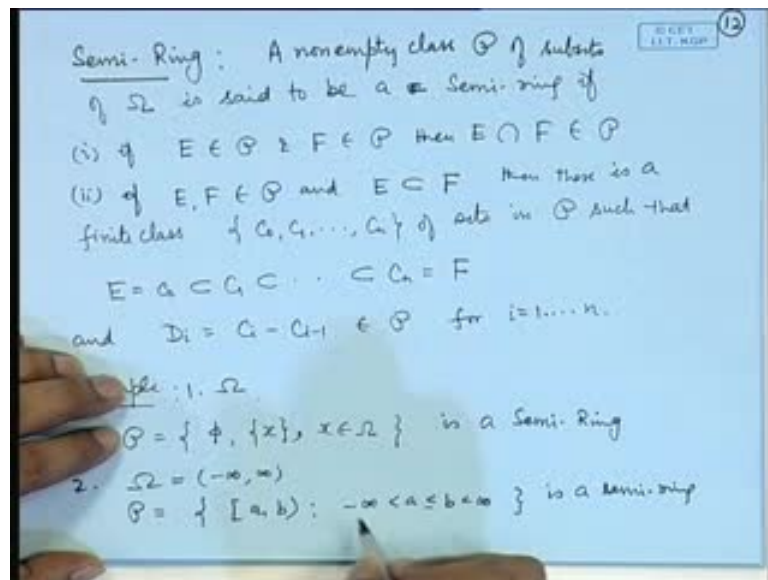 12
© CET
I.I.T. KGP
Semi-Ring : A nonempty class 𝒫 of subsets
of Ω is said to be a Semi-ring if
(i) if E ∈ 𝒫 & F ∈ 𝒫 then E ∩ F ∈ 𝒫
(ii) if E, F ∈ 𝒫 and E ⊂ F then there is a
finite class { C₀, C₁, ..., Cₙ } of sets in 𝒫 such that
E = C₀ ⊂ C₁ ⊂ ·· ⊂ Cₙ = F
and Dᵢ = Cᵢ - Cᵢ₋₁ ∈ 𝒫 for i = 1....n.
ple : 1. Ω
𝒫 = { φ, {x}, x ∈ Ω } is a Semi-Ring
2. Ω = (-∞, ∞)
𝒫 = { [a, b) : -∞ < a ≤ b < ∞ } is a semi-ring